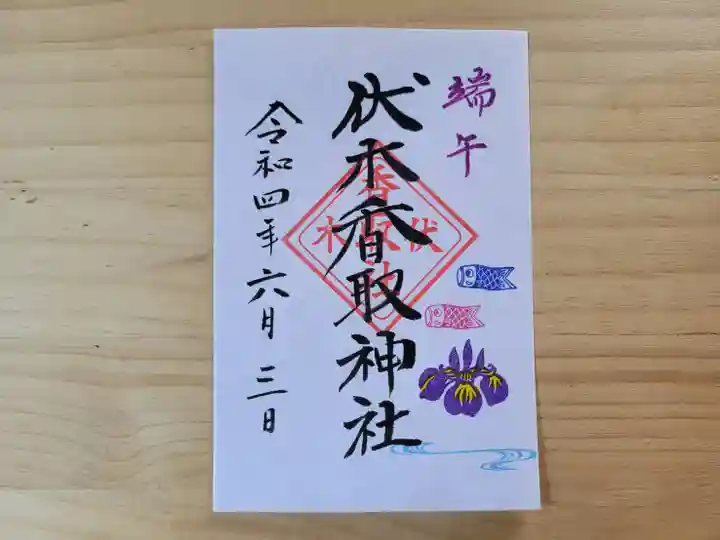 端午
伏木香取神社
令和四年六月三日
伏木
香取神社